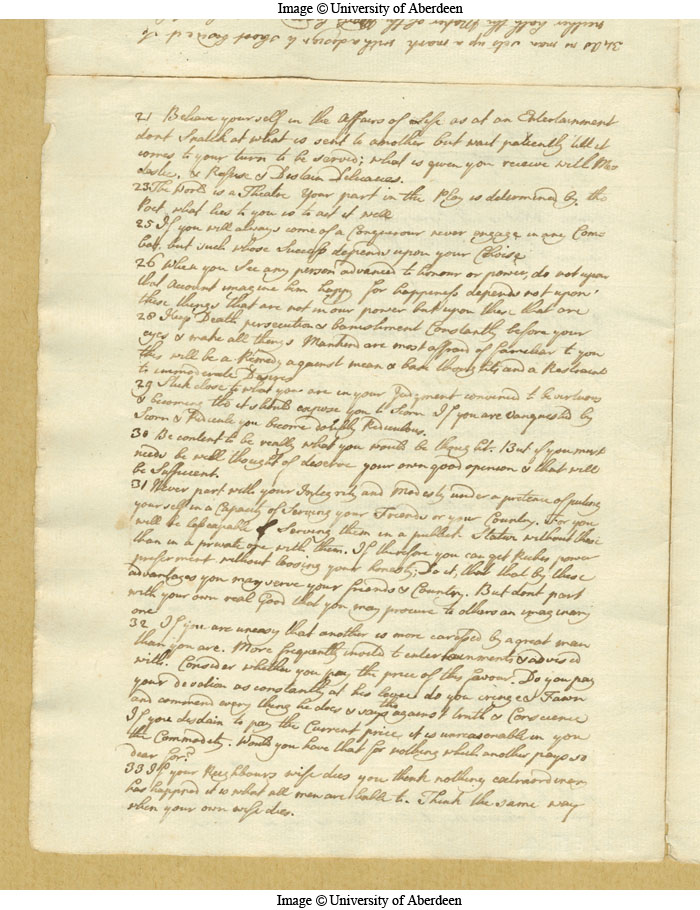 Image © University of Aberdeen
34 As no man sets up a mark with a design to shoot beside it so
neither hath the Maker of the World
21 Behave yourself in the Affairs of Life as at an Entertainment
dont Snatch at what is sent to another but wait patiently till it
comes to your turn to be served; what is given you receive with Mo
destie, & Refuse & Disdain Delicacies.
23 The World is a Theatre Your part in the Play is determined by the
Poet, what lies to you is to act it well
25 If you will always come of a Conquerour never engage in any Com
bat, but such whose Success depends upon your Choise
26 When you See any person advanced to honour or power, do not upon
that Account imagine him happy for happeness depends not upon
these things that are not in our power but upon these that are
28 Keep Death persecution & banishment Constantly before your
eyes & make all things Mankend are most affraid of fameliar to you
this will be a Remedy against mean & base thoughts and a Restraint
to immoderate Desires
29 Stick close to what you are in your Judgment convinced to be vertuous
& becoming tho it should expose you to Scorn If you are vanquested by
Scorn & Ridicule you become doubly Rediculous.
30 Be content to be really what you would be thought. But if you must
needs be well thought of deserve your own good openion & that will
be Sufficient.
31 Never part with your Integrity and Modesty under a pretence of puting
yourself in a Capacity of Serving your Friends or your Country. For you
will be less capable of Serving them in a publick Station without these
than in a private one with them. If therefore you can get Riches, power
preferment without loosing your honesty; do it, that that by these
advantages you may serve your friends & Country. But dont part
with your own real Good that you may procure to others an imaginary
one
32 If you are uneasy that another is more caressed by a great man
than you are. More frequently invited to entertainments & advised
with: Consider whether you pay the price of this favour. Do you pay
your devotion as constantly at his levee do you cringe & Fawn
and commend every thing he does & says tho against truth & Conscience
If you disdain to pay the Current price it is unreasonable in you
the Commodity. Would you have that for nothing which another pays so
dear for?
33 If your Neighbours wife dies you think nothing extraordinary
has happned it is what all men are liable to. Think the same way
when your own wife dies.
Image © University of Aberdeen